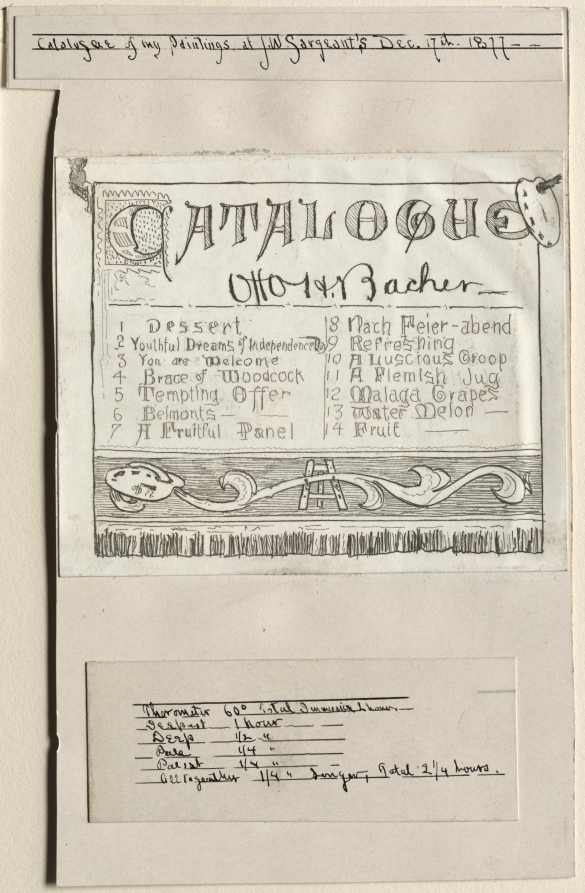 Catalogue of my Paintings at J.W. Sargeant's Dec. 17th. 1877 - -
CATALOGUE
Otto H. Bacher
1 Dessert
2 Youthful Dreams of Independence Day
3 You are Welcome
4 Brace of Woodcock
5 Tempting Offer
6 Belmonts -
7 A Fruitful Panel
8 Nach Feier-abend
9 Refreshing
10 A Luscious Groop
11 A Flemish Jug
12 Malaga Grapes
13 Water Melon -
14 Fruit -
Thormeter 60° Total Immersion 2 hours
Deepest 1 hour
Deep 1/2 "
Pale 1/4 "
Palest 1/4 "
Alltogeather 1/4 " longer, Total 2 1/4 hours.